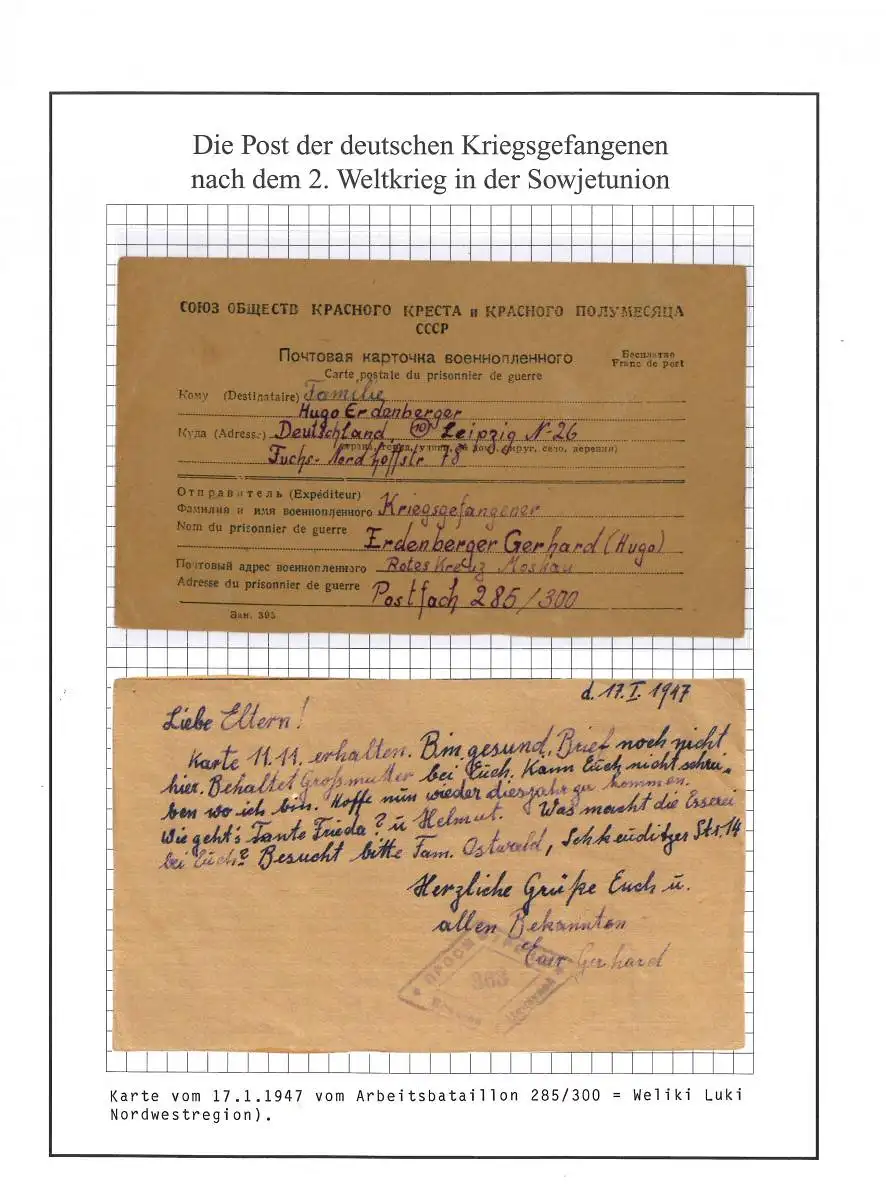 Die Post der deutschen Kriegsgefangenen
nach dem 2. Weltkrieg in der Sowjetunion
СОЮЗ ОБЩЕСТВ КРАСНОГО КРЕСТА и КРАСНОГО ПОЛУМЕСЯЦА
СССР
Почтовая карточка военнопленного
Бесплатно
Carte postale du prisonnier de guerre
Franc de port
Кому (Destinataire) Familie
Hugo Erdenberger
Куда (Adresse) Deutschland, (10) Leipzig N-26
(страна, город, улица, № дома, округ, село, деревня)
Fuchs-Nordhoffstr. 48
Отправитель (Expéditeur)
Фамилия и имя военнопленного Kriegsgefangener
Nom du prisonnier de guerre
Erdenberger Gerhard (Hugo)
Почтовый адрес военнопленного Rotes Kreuz Moskau
Adresse du prisonnier de guerre Postfach 285/300
Зак. 395
d. 17. I. 1947
Liebe Eltern!
Karte 11.11. erhalten. Bin gesund. Brief noch nicht
hier. Behaltet Großmutter bei Euch. Kann Euch nicht schrei-
ben wo ich bin. Hoffe nun wieder diesjahr zu kommen.
Wie geht's Tante Frieda? u Helmut. Was macht die Esserei
bei Euch? Besucht bitte Fam. Ostwald, Schkeuditzer Str. 14
Herzliche Grüße Euch u.
allen Bekannten
Euer Gerhard
ПРОСМОТРЕНО
383
Karte vom 17.1.1947 vom Arbeitsbataillon 285/300 = Weliki Luki
Nordwestregion).